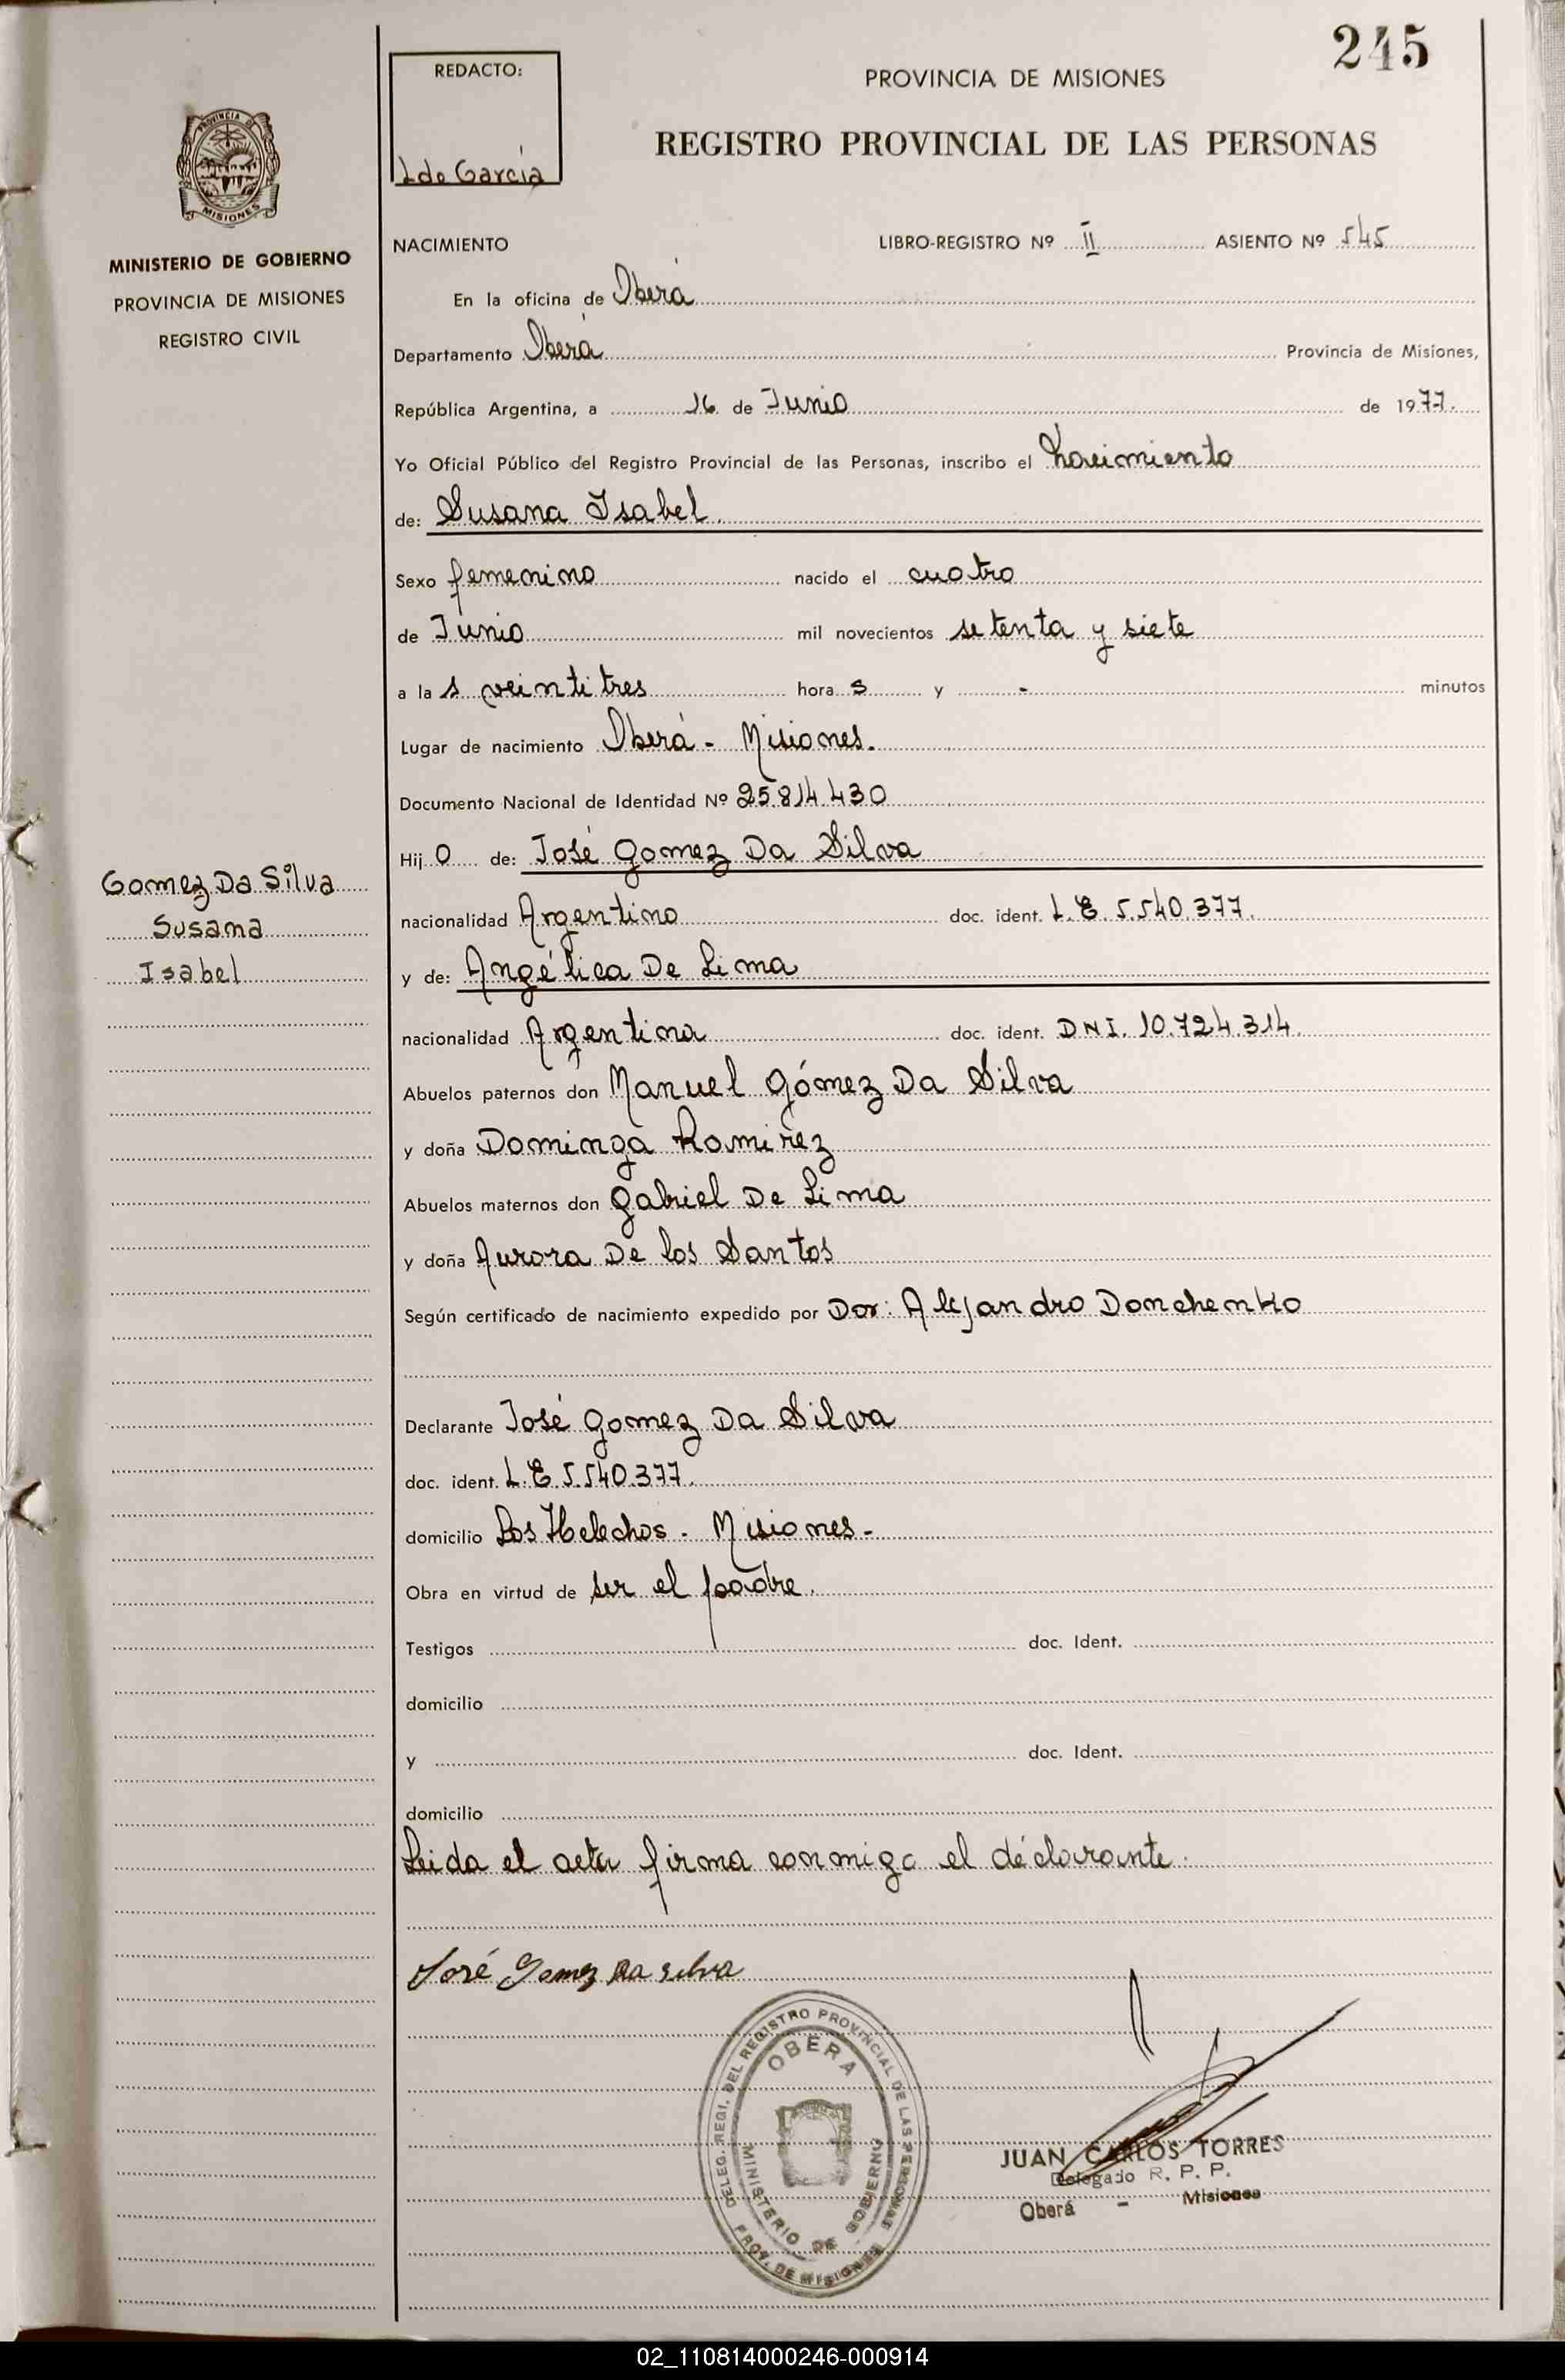 245
REDACTO:
L de García
PROVINCIA DE MISIONES
REGISTRO PROVINCIAL DE LAS PERSONAS
PROVINCIA DE
MISIONES
MINISTERIO DE GOBIERNO
PROVINCIA DE MISIONES
REGISTRO CIVIL
NACIMIENTO LIBRO-REGISTRO Nº II ASIENTO Nº 545
En la oficina de Oberá
Departamento Oberá Provincia de Misiones,
República Argentina, a 16 de Junio de 1977.
Yo Oficial Público del Registro Provincial de las Personas, inscribo el nacimiento
de: Susana Isabel.
Sexo femenino nacido el cuatro
de Junio mil novecientos setenta y siete
a las veintitres horas y - minutos
Lugar de nacimiento Oberá - Misiones.
Documento Nacional de Identidad Nº 25.814.430
Hijo de: José Gomez Da Silva
nacionalidad Argentino doc. ident. L.E 5.540.377.
y de: Angélica De Lima
nacionalidad Argentina doc. ident. DNI. 10.724.314.
Abuelos paternos don Manuel Gómez Da Silva
y doña Dominga Ramirez
Abuelos maternos don Gabriel De Lima
y doña Aurora De los Santos
Según certificado de nacimiento expedido por Dor: Alejandro Donchenko
Declarante José Gomez Da Silva
doc. ident. L.E 5.540.377.
domicilio Los Helechos - Misiones -
Obra en virtud de ser el padre.
Testigos doc. Ident.
domicilio
y doc. Ident.
domicilio
Leida el acta firma conmigo el declarante.
José Gomez Da Silva
Gomez Da Silva
Susana
Isabel
DELEG. REGI. DEL REGISTRO PROVINCIAL DE LAS PERSONAS
OBERA
MINISTERIO DE GOBIERNO
PROV. DE MISIONES
JUAN CARLOS TORRES
Delegado R. P. P.
Oberá - Misiones
02_110814000246-000914